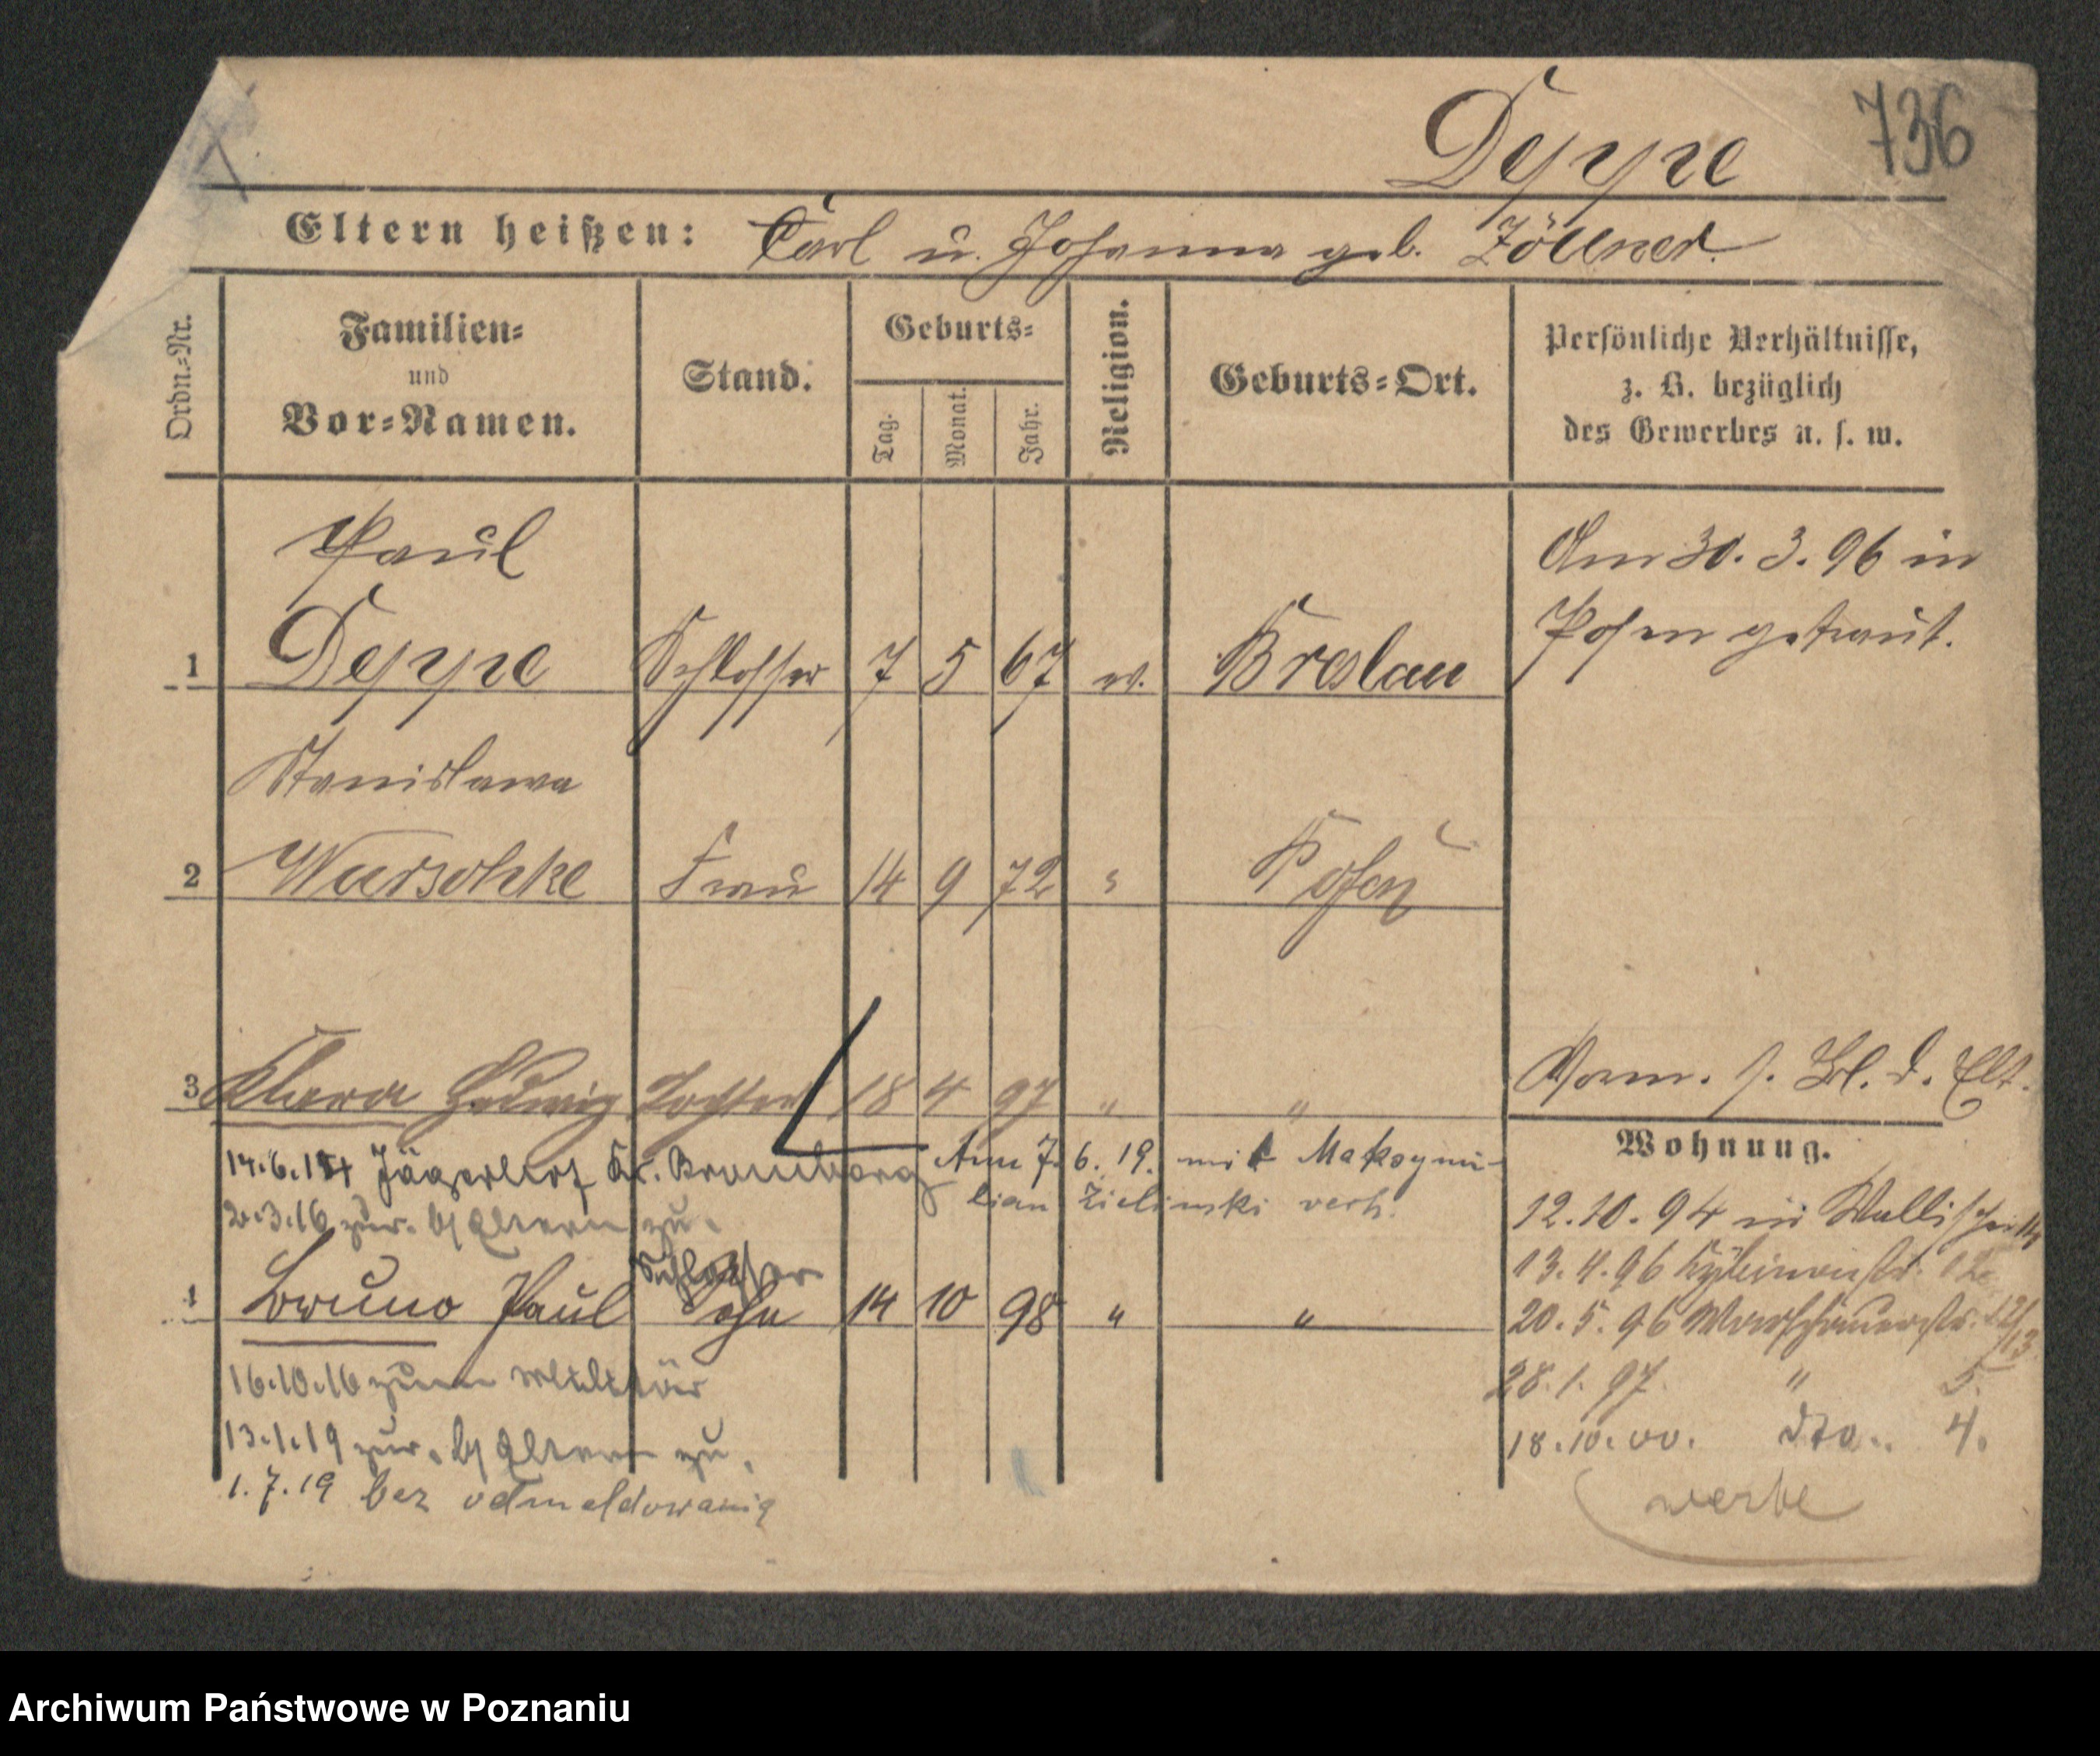 736
Deppe
Eltern heißen: Carl u. Johanna geb. Zöllner.
Ordn.=Nr.
Familien=
und
Vor=Namen.
Stand.
Geburts=
Tag.
Monat.
Jahr.
Religion.
Geburts=Ort.
Persönliche Verhältnisse,
z. B. bezüglich
des Gewerbes u. s. w.
Paul
1 Deppe Schlosser 7 5 67 ev. Breslau
Am 30. 3. 96 in
Posen getraut.
Stanislawa
2 Warschke Frau 14 9 72 " Posen
3 Klara Hedwig Tochter 18 4 97 " "
Vorm. s. Bl. d. Elt.
14.6.14 Jägerhof Kr. Bromberg
Am 7. 6. 19. mit Maksymi-
lian Zielinski verh.
2.3.16 zur. b/ Eltern zu.
Schlosser
4 Bruno Paul Sohn 14 10 98 " "
16.10.16 zum Militär
13.1.19 zur. b/ Eltern zu.
1.7.19 bez odmeldowania
Wohnung.
12.10.94 in Wallischei
13.4.96
20.5.96 Warschauerstr. 12/13
28.1.97. " 5.
18.10.00. dto. 4.